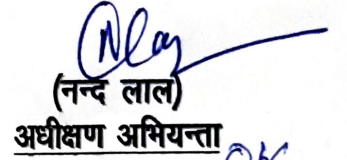 (नन्द लाल)
अधीक्षण अभियन्ता